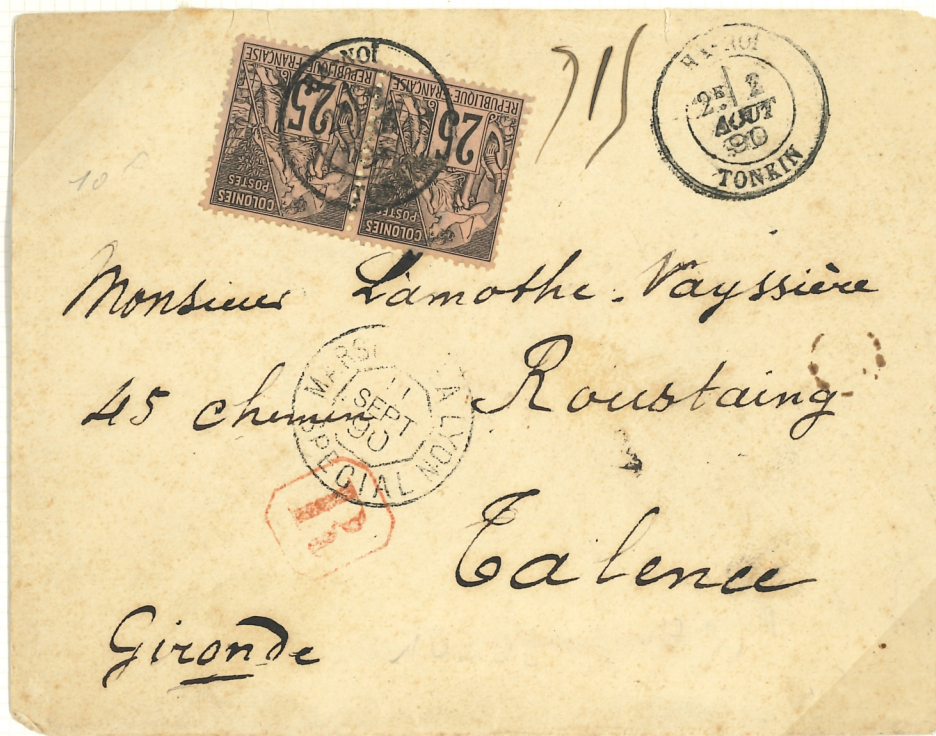 RÉPUBLIQUE FRANÇAISE
25
COLONIES
POSTES
RÉPUBLIQUE FRANÇAISE
25
COLONIES
POSTES
HA-NOI
2E 2
AOUT
90
TONKIN
10 F
Monsieur Lamothe-Vayssière
45 chemin Roustaing
MARS A LYON
11
SEPT
90
SPECIAL
R
Talence
Gironde